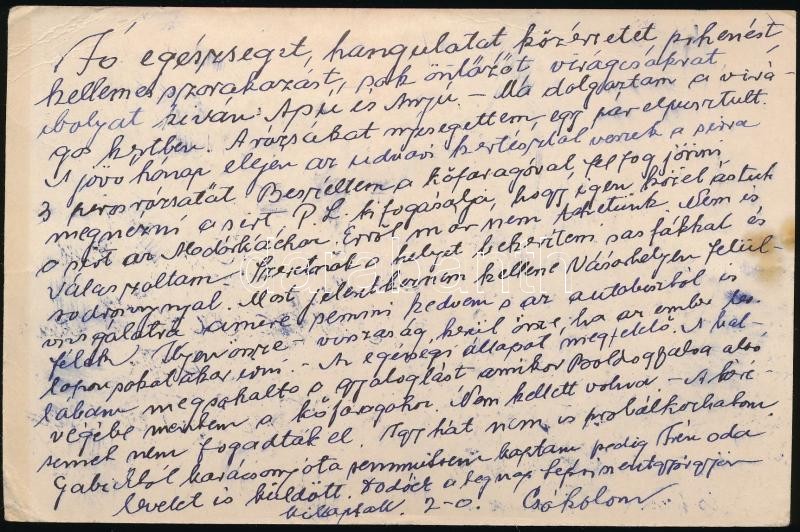 Jó egészséget, hangulatot közérzetet pihenést
kellemes szorakozást, sok öntözöt virágcsákrat
ibolyat kiván Apú és Anyú. – Ma dolgoztam a virá-
gos kertben. A rózsákat megsegettem, egy par elpusztult.
A jövő hónap elején az udvari kertésztől veszek a sirra
3 piros rózsatöt. Beszéltem a kőfaragóval, fel fog jönni
megnézni a sirt. P.L. kifogasolja, hogy igen közel ástuk
a sirt az Modorkáéhoz. Erről már nem tehetünk. Nem is
válaszoltam. Szeretnök a helyet bekeriteni vas fákkal és
sodronnyal. Most jelentkeznem kellene Vásárhelyen felül-
vizsgálatra amire semmi kedvem s az autobusztól is
félek. Ilyen össze-visszaság kerül össze, ha az ember
laponsokat akar irni. – Az egészségi állapat megfelelő. A bal
labam megsokalta a gyaloglást amikor Boldogfalva alsó
végébe mentem a kőfaragóhoz. Nem kellett volna. – A
nem fogadták el. Igy hát nem is probálkozhatom
Gabiéktól karácsony óta semmit sem kaptam pedig Irén oda
levelet is küldött. tegnap
kikaptak 2-0. Csókolom
darabanth